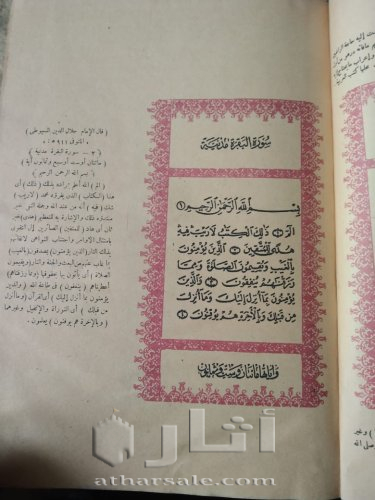 سورة البقرة مدنية
بسم الله الرحمن الرحيم ١
الم ١ ذلك الكتب لا ريب فيه
هدى للمتقين ٢ الذين يؤمنون
بالغيب ويقيمون الصلوة ومما
رزقنهم ينفقون ٣ والذين
يؤمنون بما أنزل إليك وما أنزل
من قبلك وبالآخرة هم يوقنون ٤
وآياتها مائتان وست وثمانون
( قال الإمام جلال الدين السيوطي )
( المتوفى ٩١١ هـ )
سورة البقرة مدنية
مائتان أو ست أو سبع وثمانون آية )
بسم الله الرحمن الرحيم
( الم ) الله أعلم بمراده بذلك ( ذلك ) أى
هذا ( الكتاب ) الذى يقرؤه محمد ( لا ريب )
شك ( فيه ) أنه من عند الله وجملة النفى خبر
مبتدؤه ذلك والإشارة به للتعظيم ( هدى ) خبر
ثان هاد ( للمتقين ) الصائرين إلى التقوى
بامتثال الأوامر واجتناب النواهى لاتقائهم
بذلك النار ( الذين يؤمنون ) يصدقون
( بالغيب ) بما غاب عنهم من البعث والجنة والنار ( ويقيمون
الصلاة ) أى يأتون بها بحقوقها ( ومما رزقناهم )
أعطيناهم ( ينفقون ) فى طاعة الله ( والذين
يؤمنون بما أنزل إليك ) أى القرآن ( وما أنزل
من قبلك ) أى التوراة والإنجيل وغيرهما
( وبالآخرة هم يوقنون ) يعلمون .
آثار
atharsale.com